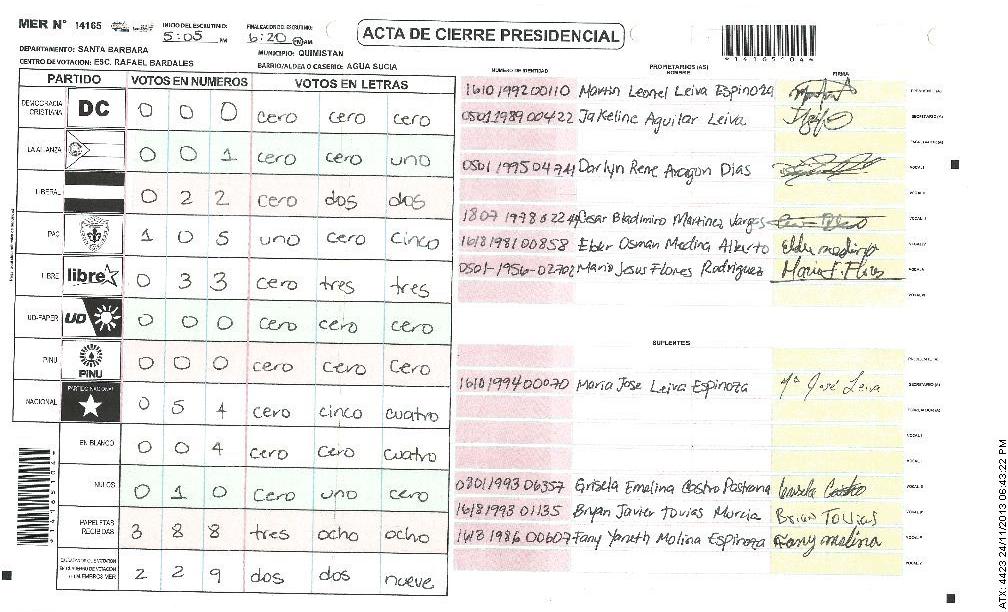 MER N° 14165 INICIO DEL ESCRUTINIO: 5:05 PM FINALIZACION DEL ESCRUTINIO: 6:20 PM AM
ACTA DE CIERRE PRESIDENCIAL
DEPARTAMENTO: SANTA BARBARA MUNICIPIO: QUIMISTAN
CENTRO DE VOTACION: ESC. RAFAEL BARDALES BARRIO/ALDEA O CASERIO: AGUA SUCIA
*14165104*
PARTIDO VOTOS EN NUMEROS VOTOS EN LETRAS
DEMOCRACIA CRISTIANA DC 0 0 0 cero cero cero
LA ALIANZA 0 0 1 cero cero uno
LIBERAL 0 2 2 cero dos dos
PAC 1 0 5 uno cero cinco
LIBRE libre 0 3 3 cero tres tres
UD-FAPER UD 0 0 0 cero cero cero
PINU PINU 0 0 0 cero cero cero
NACIONAL PARTIDO NACIONAL 0 5 4 cero cinco cuatro
EN BLANCO 0 0 4 cero cero cuatro
NULOS 0 1 0 cero uno cero
PAPELETAS RECIBIDAS 3 8 8 tres ocho ocho
2 2 9 dos dos nueve
NUMERO DE IDENTIDAD PROPIETARIOS (AS) NOMBRE FIRMA
1610199200110 Martin Leonel Leiva Espinoza PRESIDENTE (A)
0501198900422 Jakeline Aguilar Leiva SECRETARIO (A)
Darlyn Rene Aragon Dias VOCAL I
Cesar Bladimiro Martinez Vargas
1618198100858 Eber Osman Medina Alberto
0501-1956-02702 Mario Jesus Flores Rodriguez Mario J. Flores
SUPLENTES
PRESIDENTE (A)
1610199400070 Maria Jose Leiva Espinoza Mª José Leiva SECRETARIO (A)
Grisela Emelina Castro Pastrana Grisela Castro
1618199301135 Bryan Javier Tovias Murcia Brian Tovias
Fany Yaneth Molina Espinoza Fany molina
*14165104*
ATX: 4423 24/11/2013 06:43:22 PM